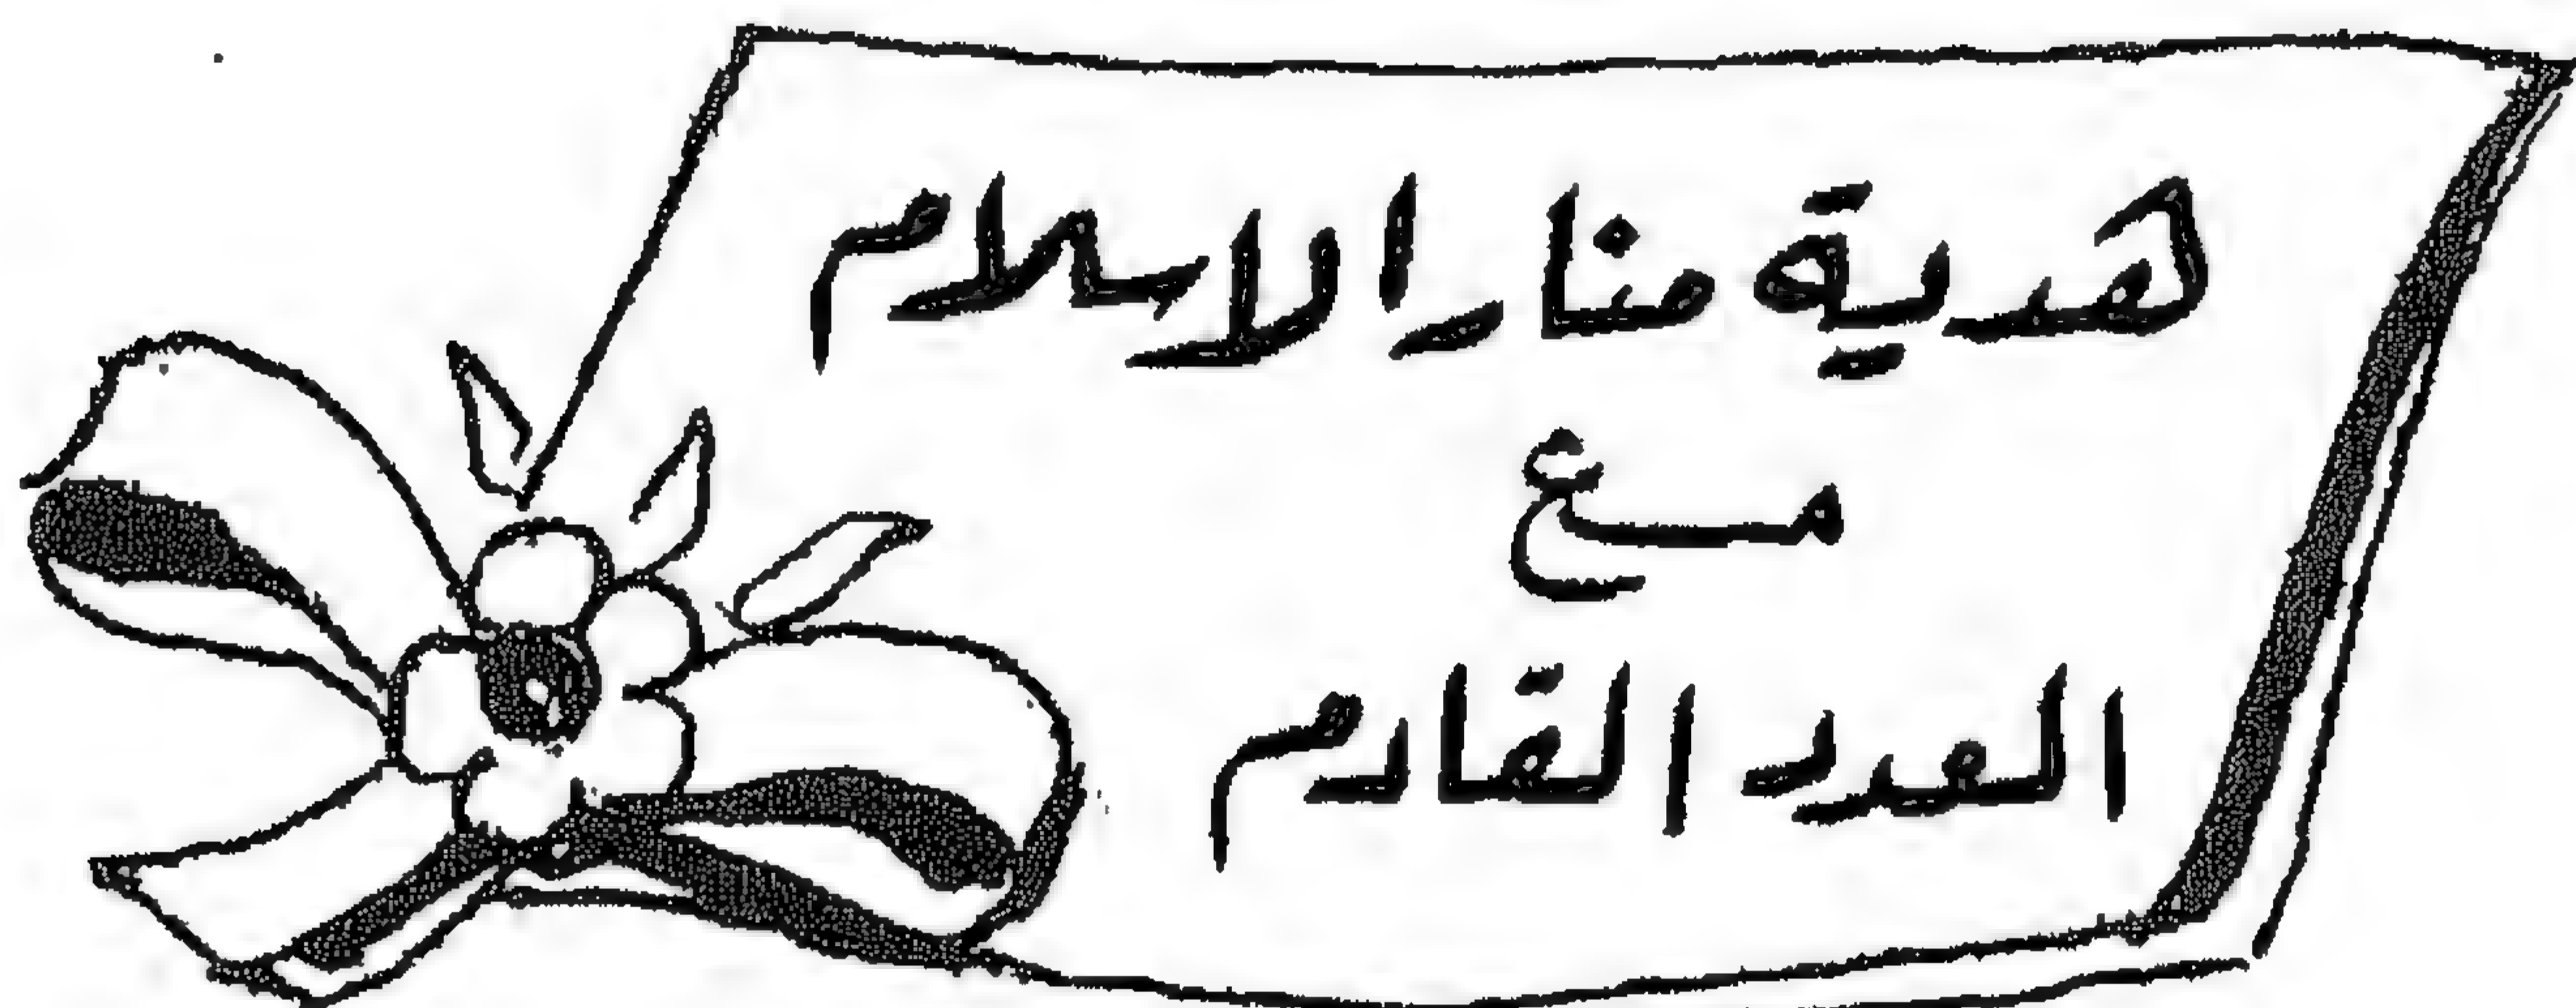 هدية منار الاسلام
مع
العدد القادم